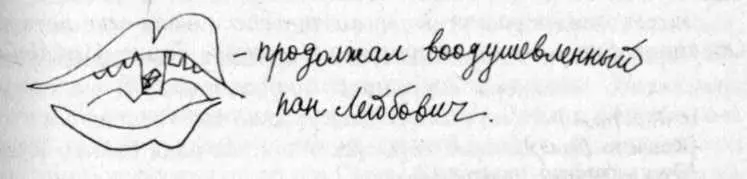 продолжал воодушевленный
пан Лейбович.